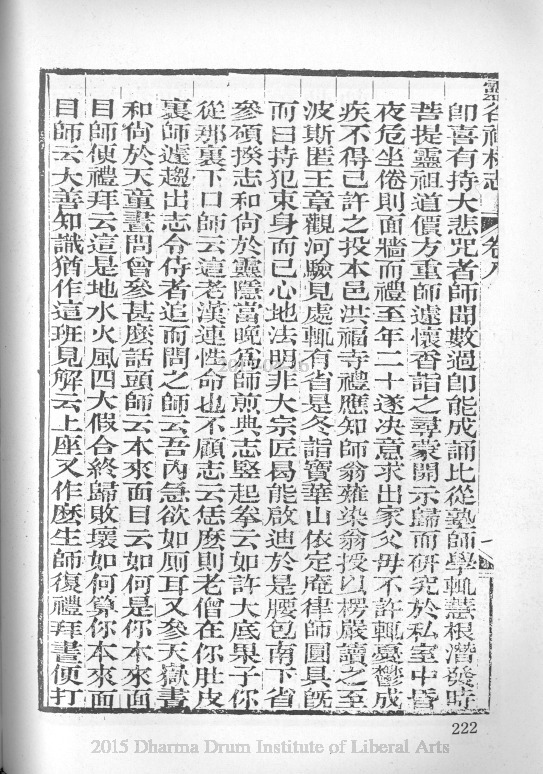 靈谷禪林志　卷八
即喜有持大悲咒者師聞數過即能成誦比從塾師學輒慧根潛發時
菩提靈祖道價方重師遂懷香詣之尋蒙開示歸而研究於私室中昏
夜危坐倦則面牆而禮至年二十遂決意求出家父母不許輒憂鬱成
疾不得已許之投本邑洪福寺禮應知師翁薙染翁授以楞嚴讀之至
波斯匿王章觀河驗見處輒有省是冬詣寶華山依定庵律師圓具既
而曰持犯束身而已心地法明非大宗匠曷能啟迪於是腰包南下省
參碩揆志和尚於靈隱當晚為師煎典志竪起拳云如許大底果子你
從那裏下口師云這老漢連性命也不顧志云恁麼則老僧在你肚皮
裏師遽趨出志令侍者追而問之師云吾內急欲如厠耳又參天嶽晝
和尚於天童晝問曾參甚麼話頭師云本來面目云如何是你本來面
目師便禮拜云這是地水火風四大假合終歸敗壞如何算你本來面
目師云大善知識猶作這班見解云上座又作麼生師復禮拜晝便打
222
2015 Dharma Drum Institute of Liberal Arts